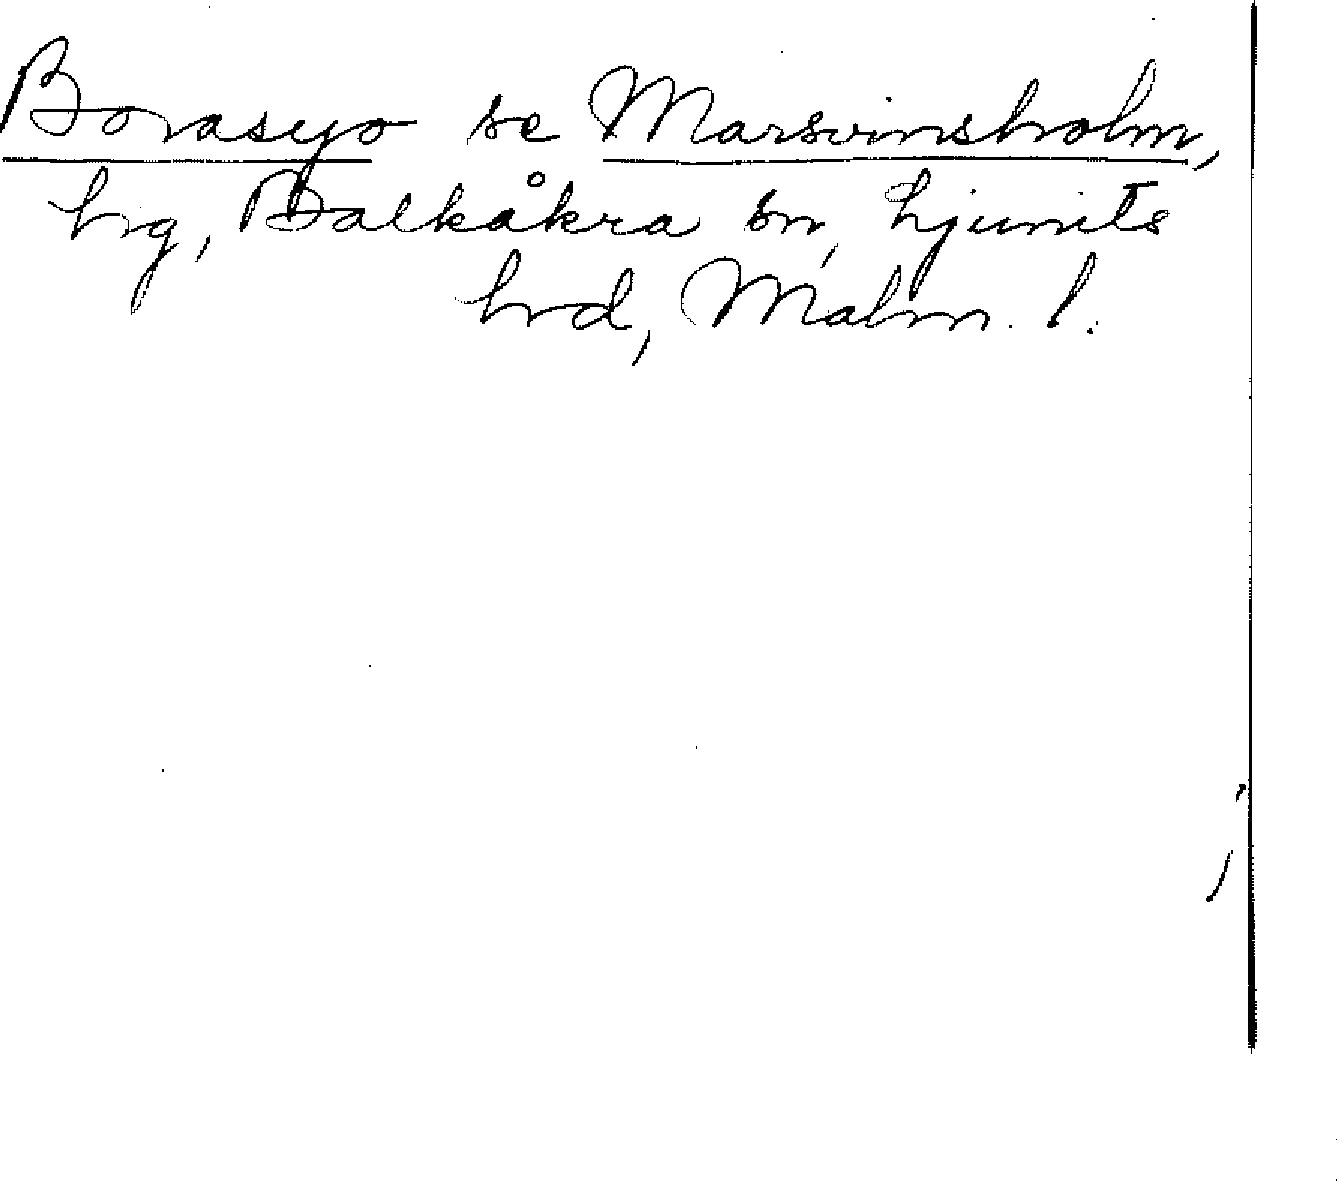 Borasyo se Marsvinsholm,
hrg, Balkåkra sn, Ljunits
hrd, Malm. l.